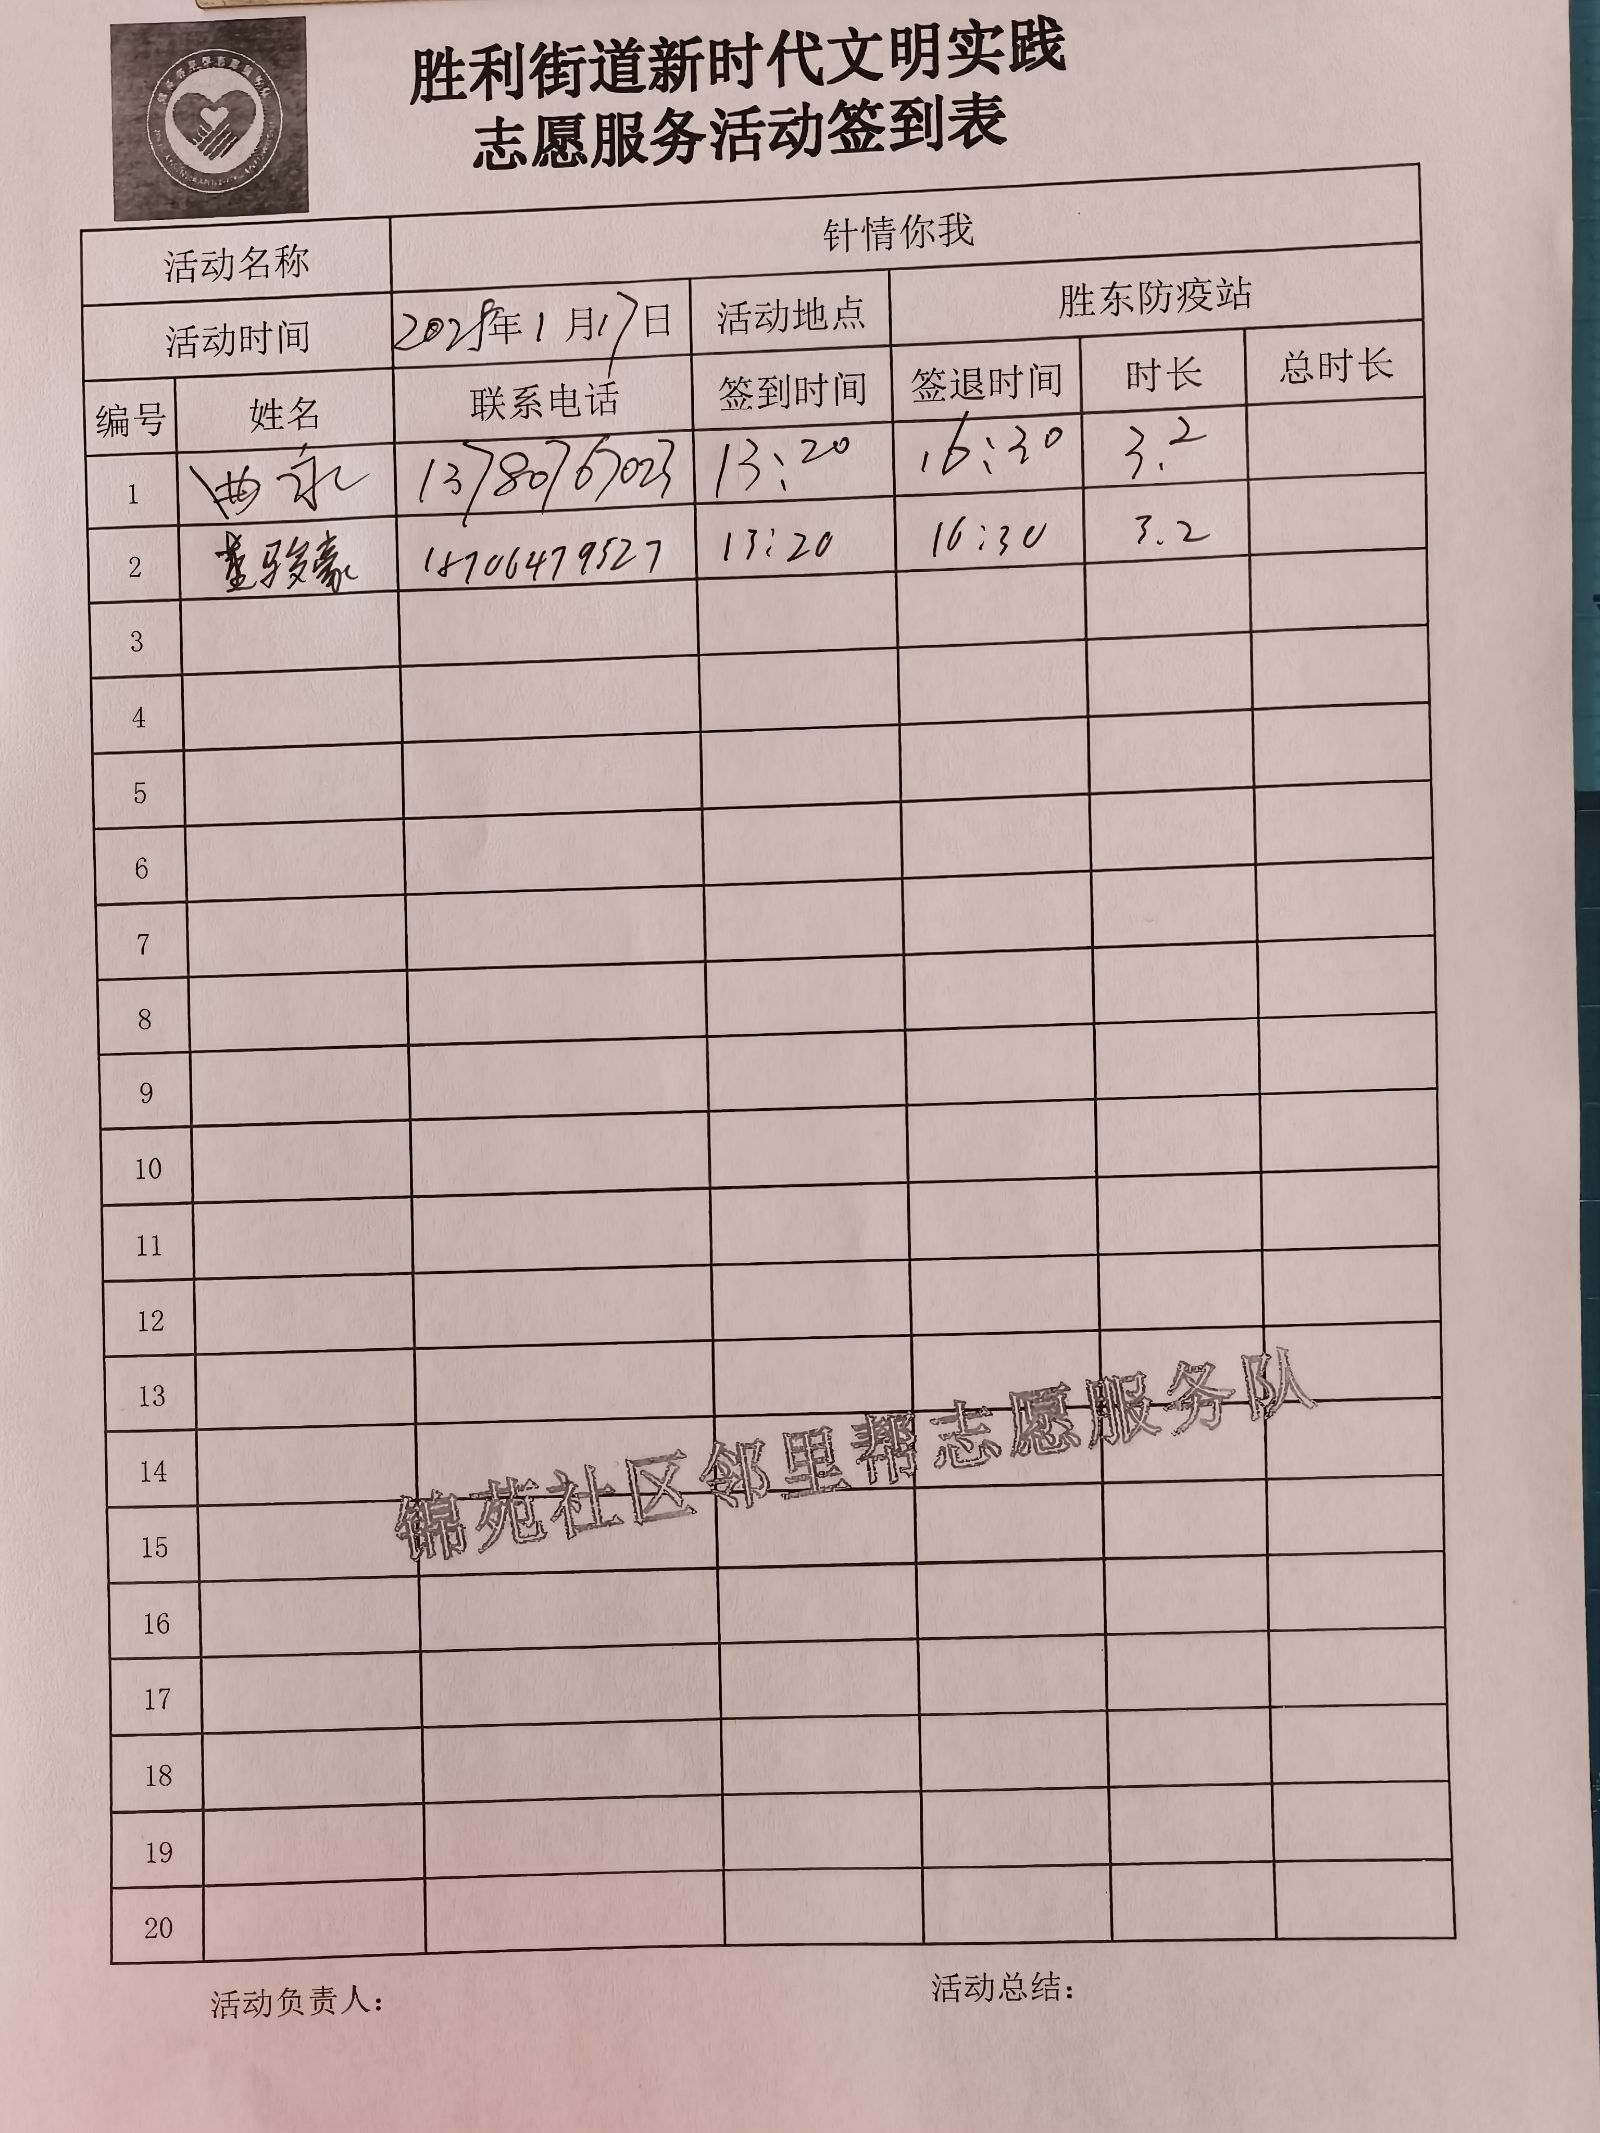 胜利街道新时代文明实践
志愿服务活动签到表
活动名称 针情你我
活动时间 2025年1月17日 活动地点 胜东防疫站
编号 姓名 联系电话 签到时间 签退时间 时长 总时长
1 曲永 13780767023 13:20 16:30 3.2
2 董骏豪 18706479527 13:20 16:30 3.2
3
4
5
6
7
8
9
10
11
12
13
14
15
16
17
18
19
20
锦苑社区邻里帮志愿服务队
活动负责人: 活动总结: